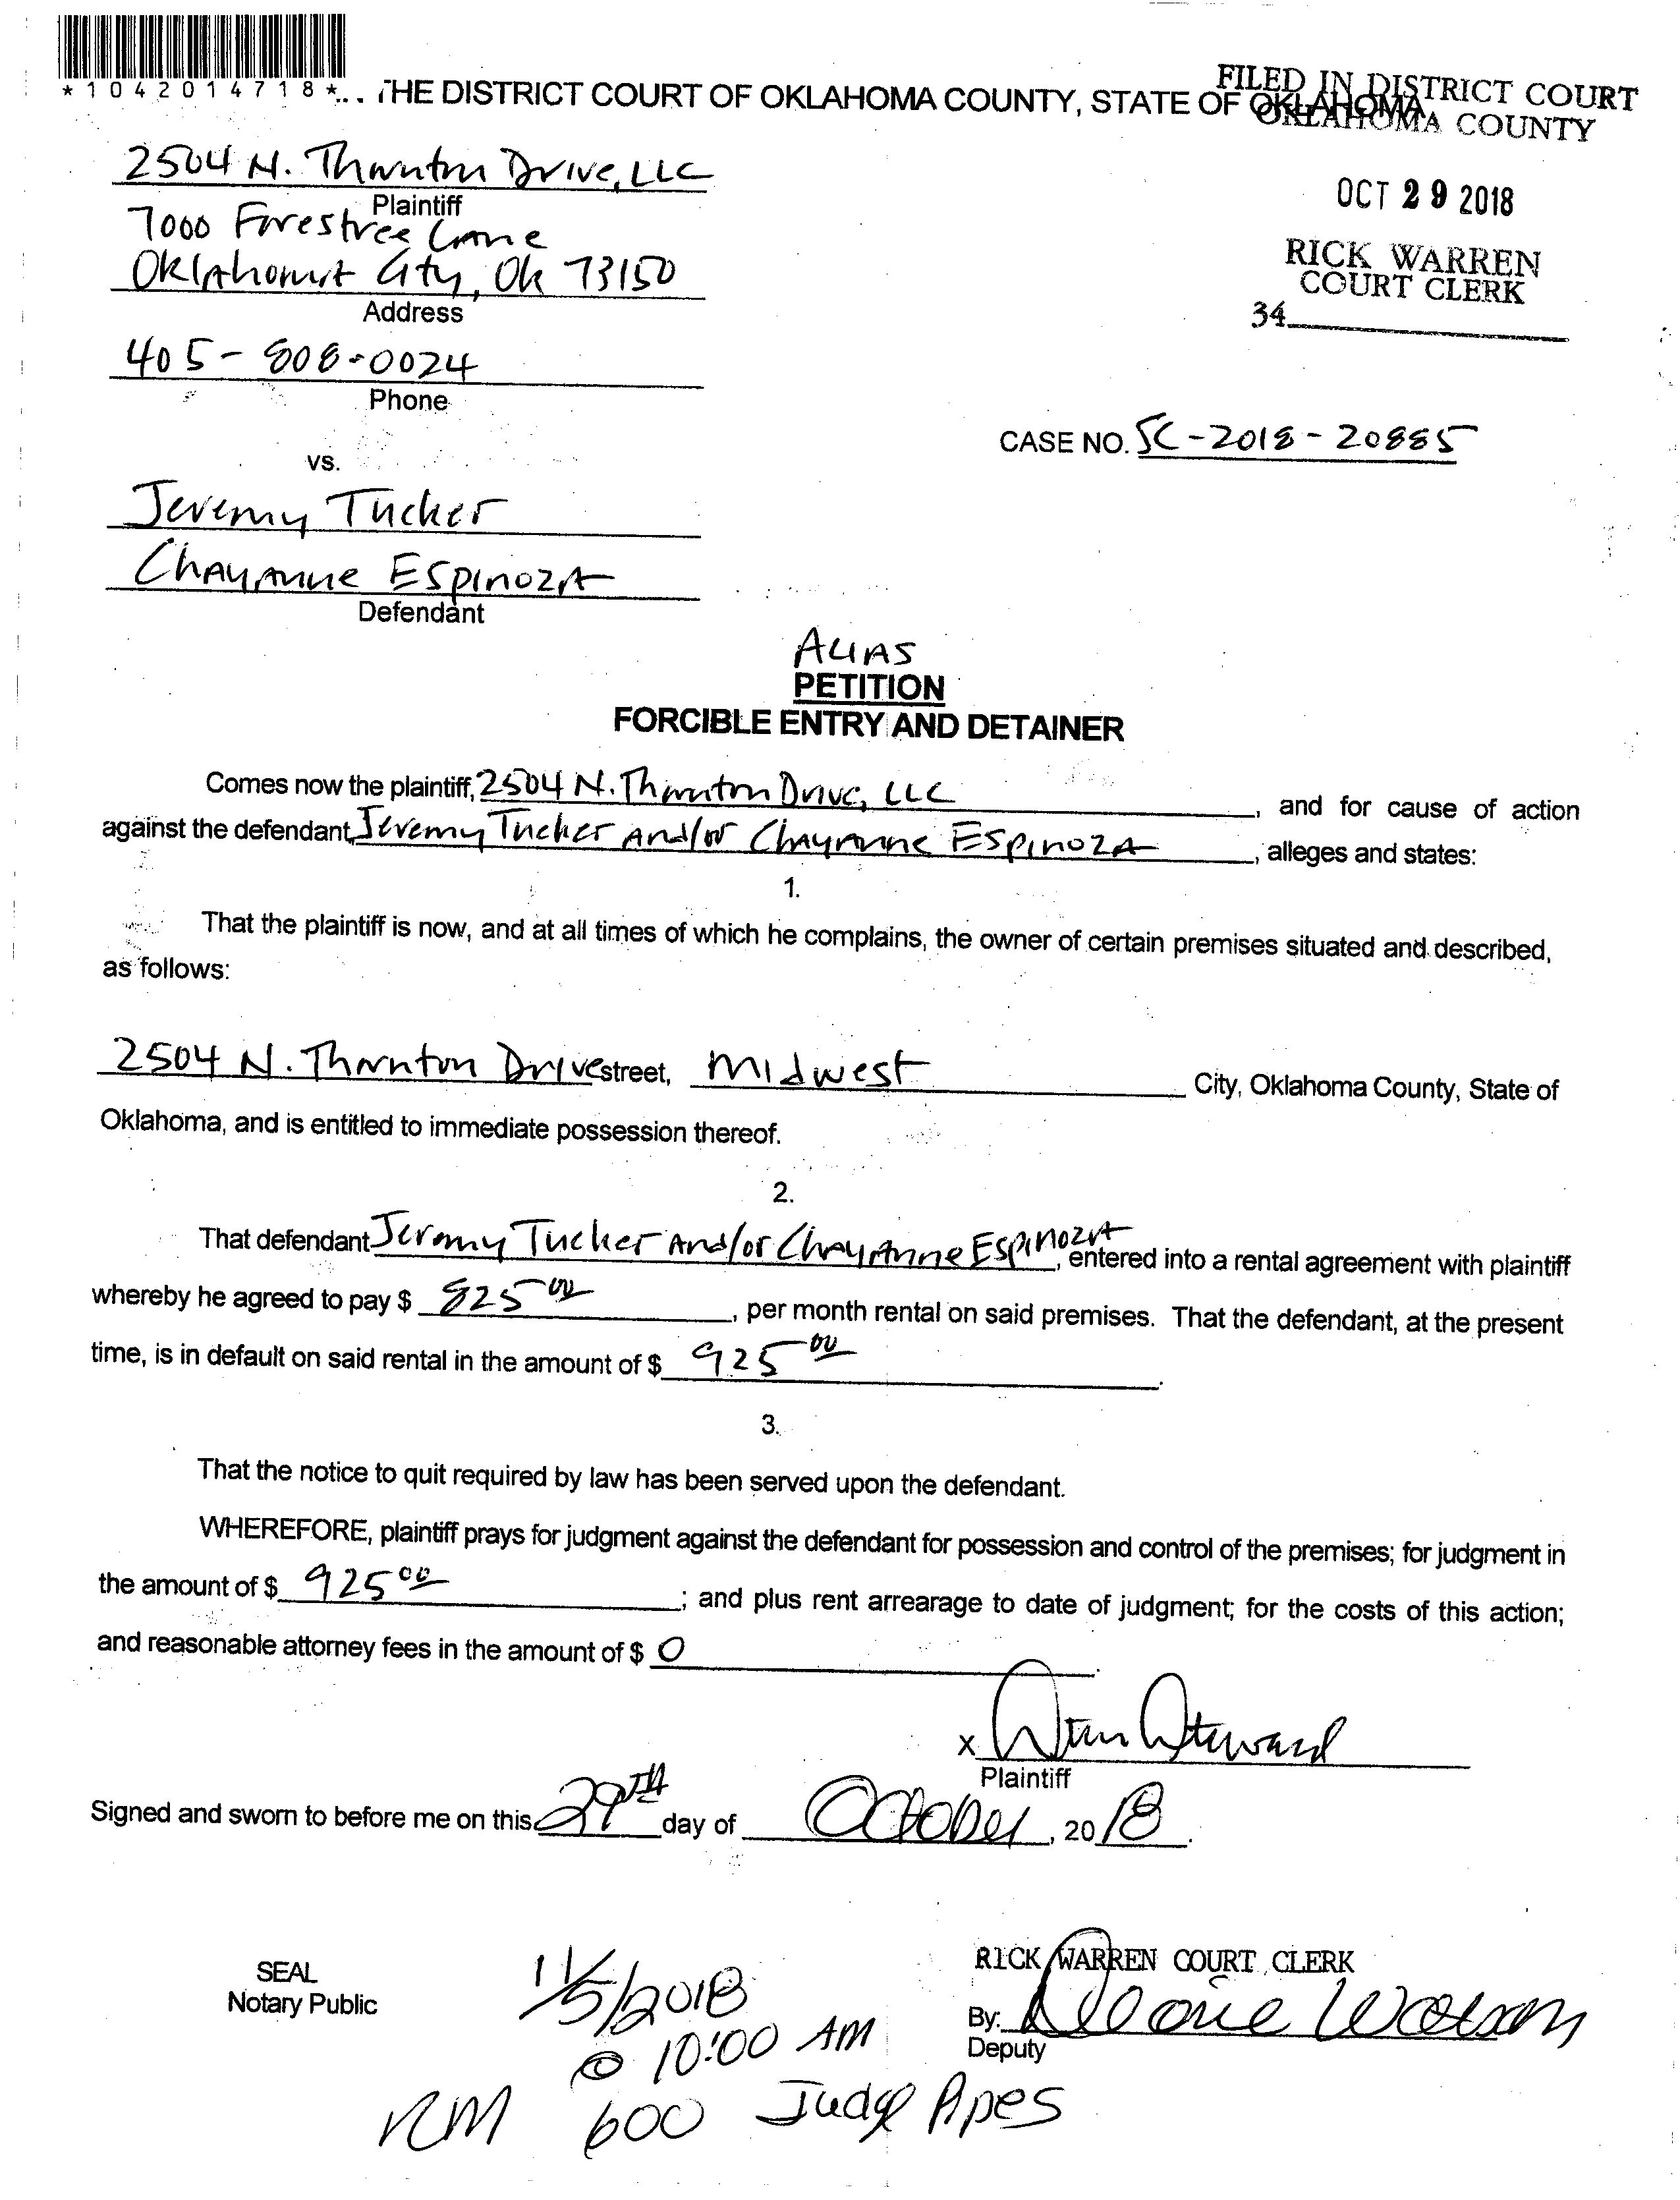 *1042014718*
THE DISTRICT COURT OF OKLAHOMA COUNTY, STATE OF OKLAHOMA
FILED IN DISTRICT COURT
OKLAHOMA COUNTY
2504 N. Thornton Drive, LLC
Plaintiff
OCT 29 2018
7000 Forestree Lane
Oklahoma City, Ok 73150
Address
RICK WARREN
COURT CLERK
34
405-808-0024
Phone
CASE NO. SC-2018-20885
vs.
Jeremy Tucker
Chayanne Espinoza
Defendant
ALIAS
PETITION
FORCIBLE ENTRY AND DETAINER
Comes now the plaintiff, 2504 N. Thornton Drive, LLC, and for cause of action
against the defendant, Jeremy Tucker and/or Chayanne Espinoza, alleges and states:
1.
That the plaintiff is now, and at all times of which he complains, the owner of certain premises situated and described,
as follows:
2504 N. Thornton Drive street, Midwest City, Oklahoma County, State of
Oklahoma, and is entitled to immediate possession thereof.
2.
That defendant Jeremy Tucker and/or Chayanne Espinoza, entered into a rental agreement with plaintiff
whereby he agreed to pay $ 825 00, per month rental on said premises. That the defendant, at the present
time, is in default on said rental in the amount of $ 925 00.
3.
That the notice to quit required by law has been served upon the defendant.
WHEREFORE, plaintiff prays for judgment against the defendant for possession and control of the premises; for judgment in
the amount of $ 925 00; and plus rent arrearage to date of judgment; for the costs of this action;
and reasonable attorney fees in the amount of $ 0.
X
Plaintiff
Signed and sworn to before me on this 29TH day of October, 2018.
SEAL
Notary Public
RICK WARREN COURT CLERK
By:
Deputy
11/5/2018
@ 10:00 AM
RM 600 Judge Apes